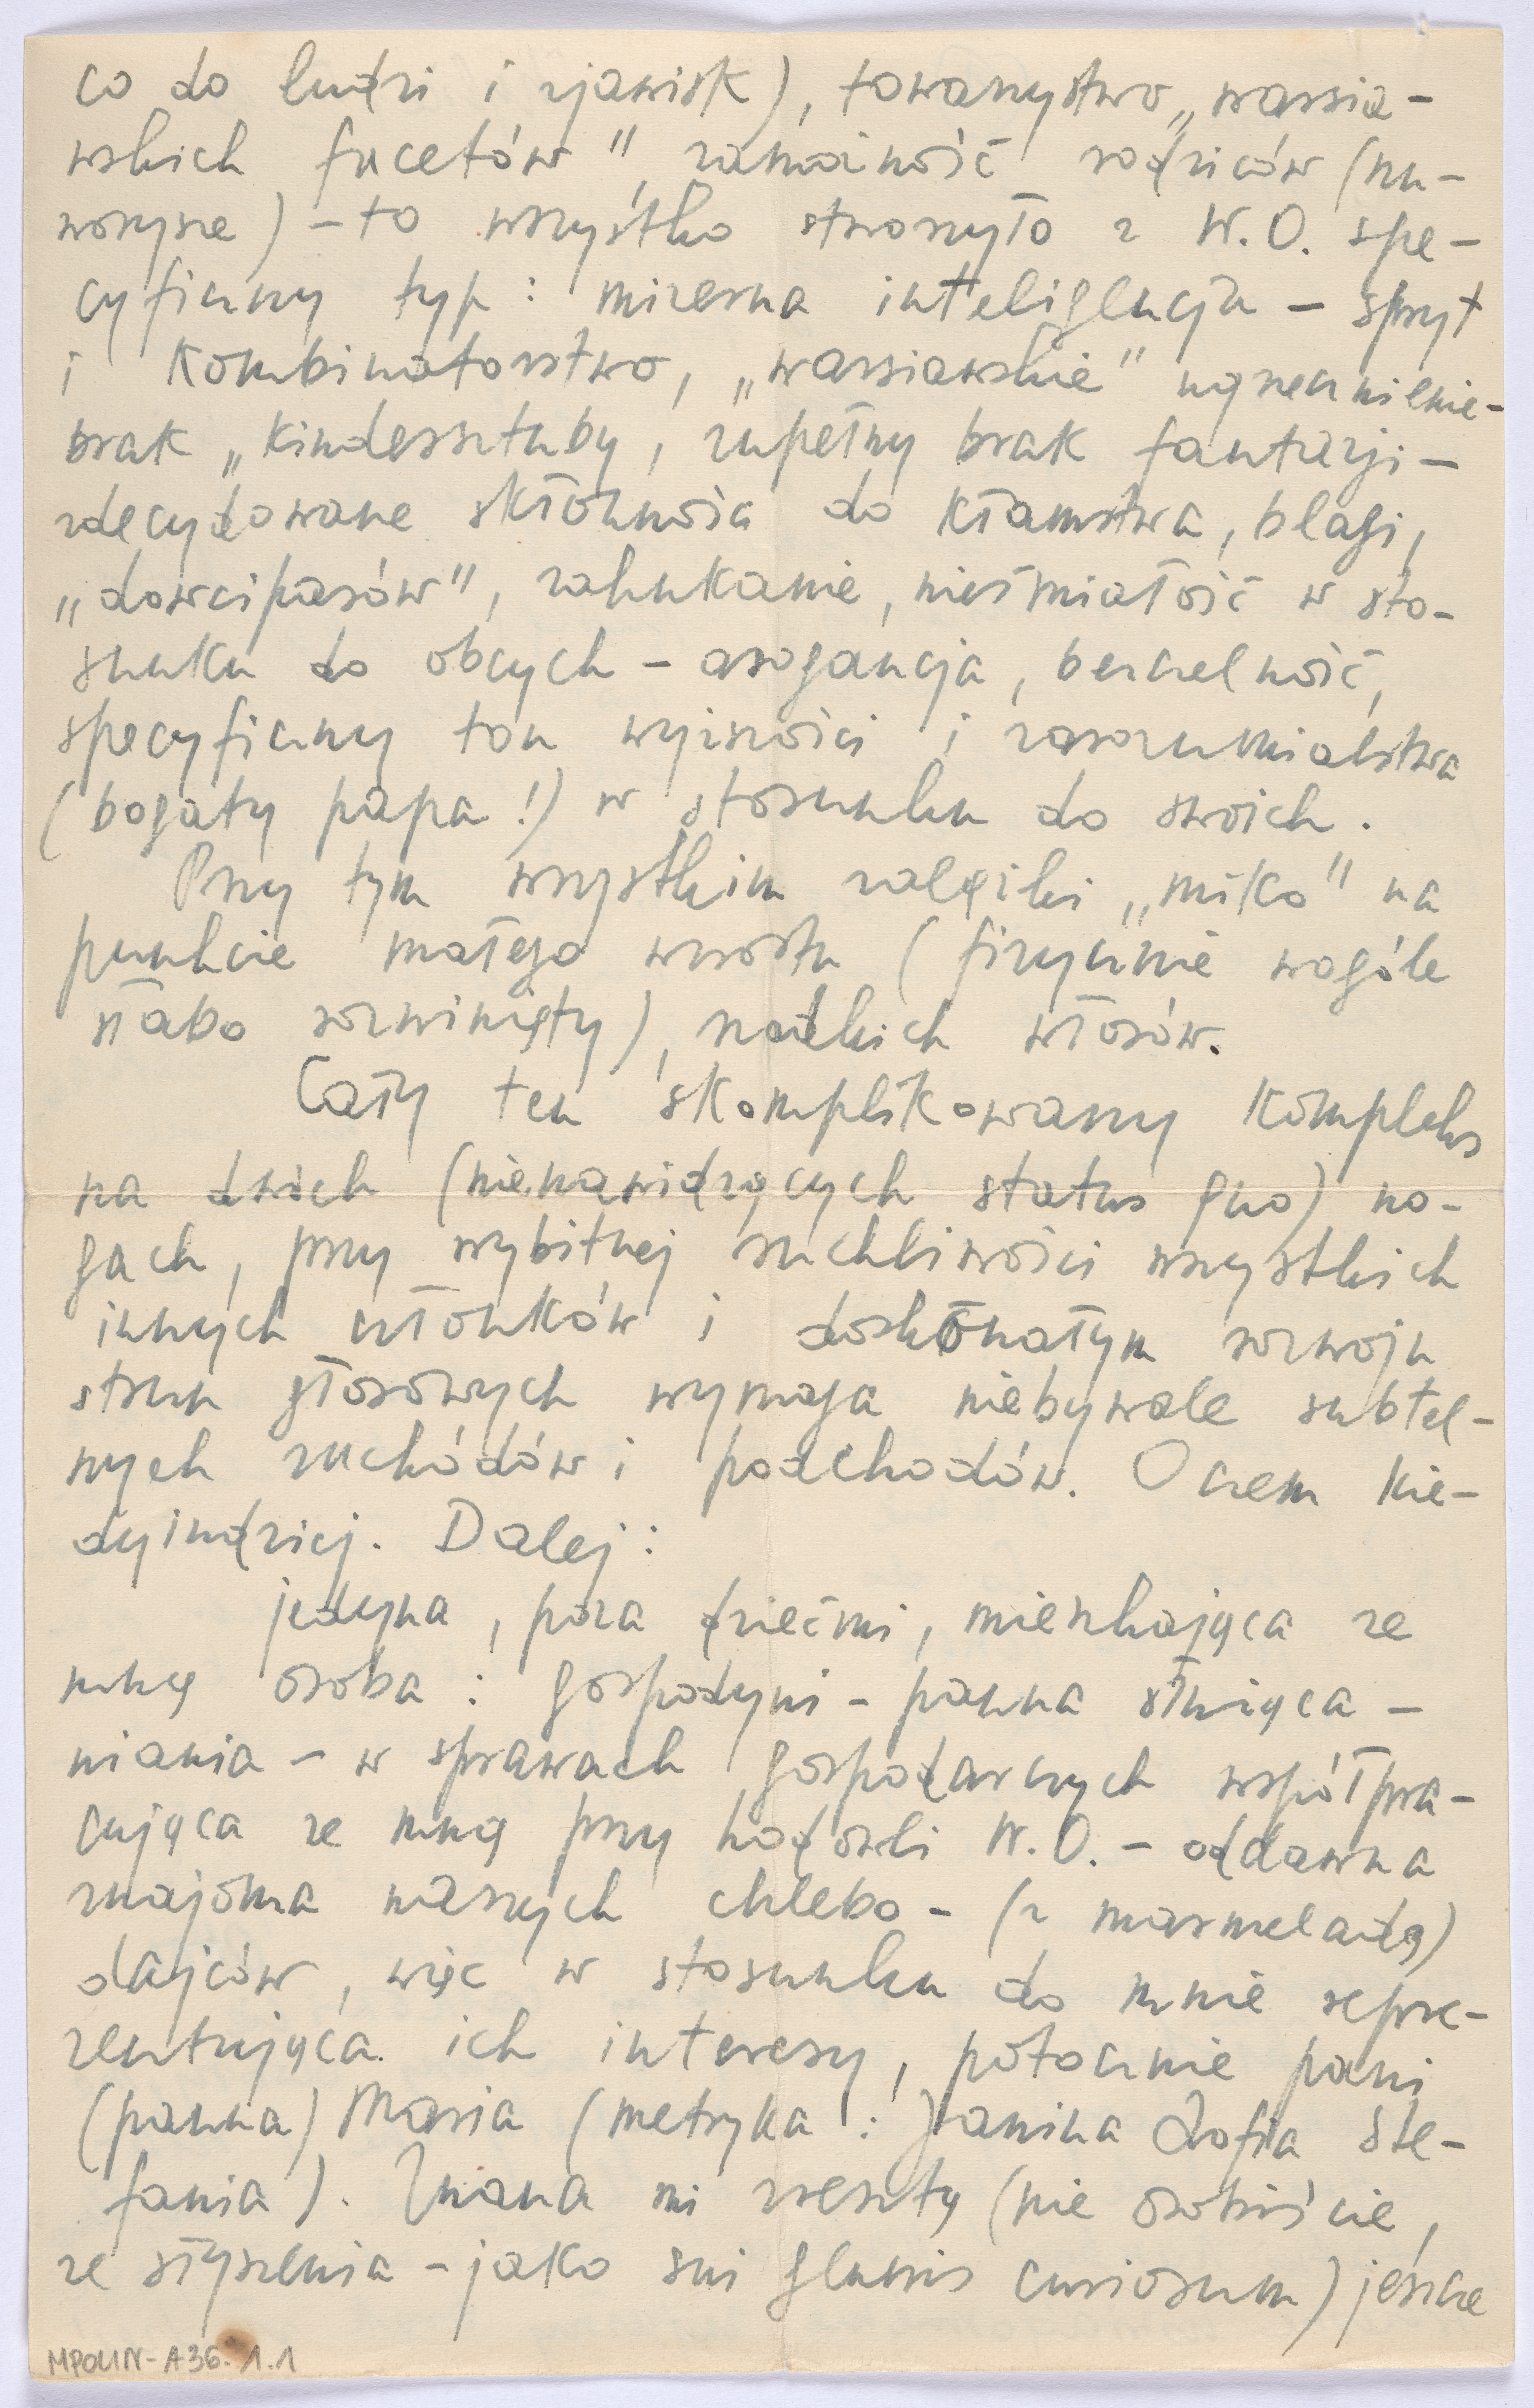 co do ludzi i zjawisk), towarzystwo „warsza-
wskich facetów", zamożność rodziców (nu-
worysze) – to wszystko stworzyło z W.O. spe-
cyficzny typ: mizerna inteligencja – spryt
i kombinatorstwo, „warszawskie" ugrzecznienie-
brak „kindersztuby, zupełny brak fantazji –
zdecydowane skłonności do kłamstwa, blagi,
„dowcipasów", zahukanie, nieśmiałość w sto-
sunku do obcych – arogancja, bezczelność,
specyficzny ton wyższości i zarozumialstwa
(bogaty papa!) w stosunku do swoich.
Przy tym wszystkim zalążki „miko" na
punkcie małego wzrostu (fizycznie wogóle
słabo rozwinięty), rzadkich włosów.
Cały ten skomplikowany kompleks
na dwóch (nienawidzących status quo) no-
gach, przy wybitnej ruchliwości wszystkich
innych członków i doskonałym rozwoju
strun głosowych wymaga niebywale subtel-
nych zachodów i podchodów. O czem kie-
dyindziej. Dalej:
jedyna, poza dziećmi, mieszkająca ze
mną osoba: gospodyni – panna służąca –
niania – w sprawach gospodarczych współpra-
cująca ze mną przy hodowli W.O. – oddawna
znajoma naszych chlebo – (z marmeladą)
dajców, więc w stosunku do mnie repre-
zentująca ich interesy, potocznie pani
(panna) Maria (metryka: Janina Zofia Ste-
fania). Znana mi zresztą (nie osobiście,
ze słyszenia – jako sui generis curiosum) jeszcze
MPOLIN-A36.1.1